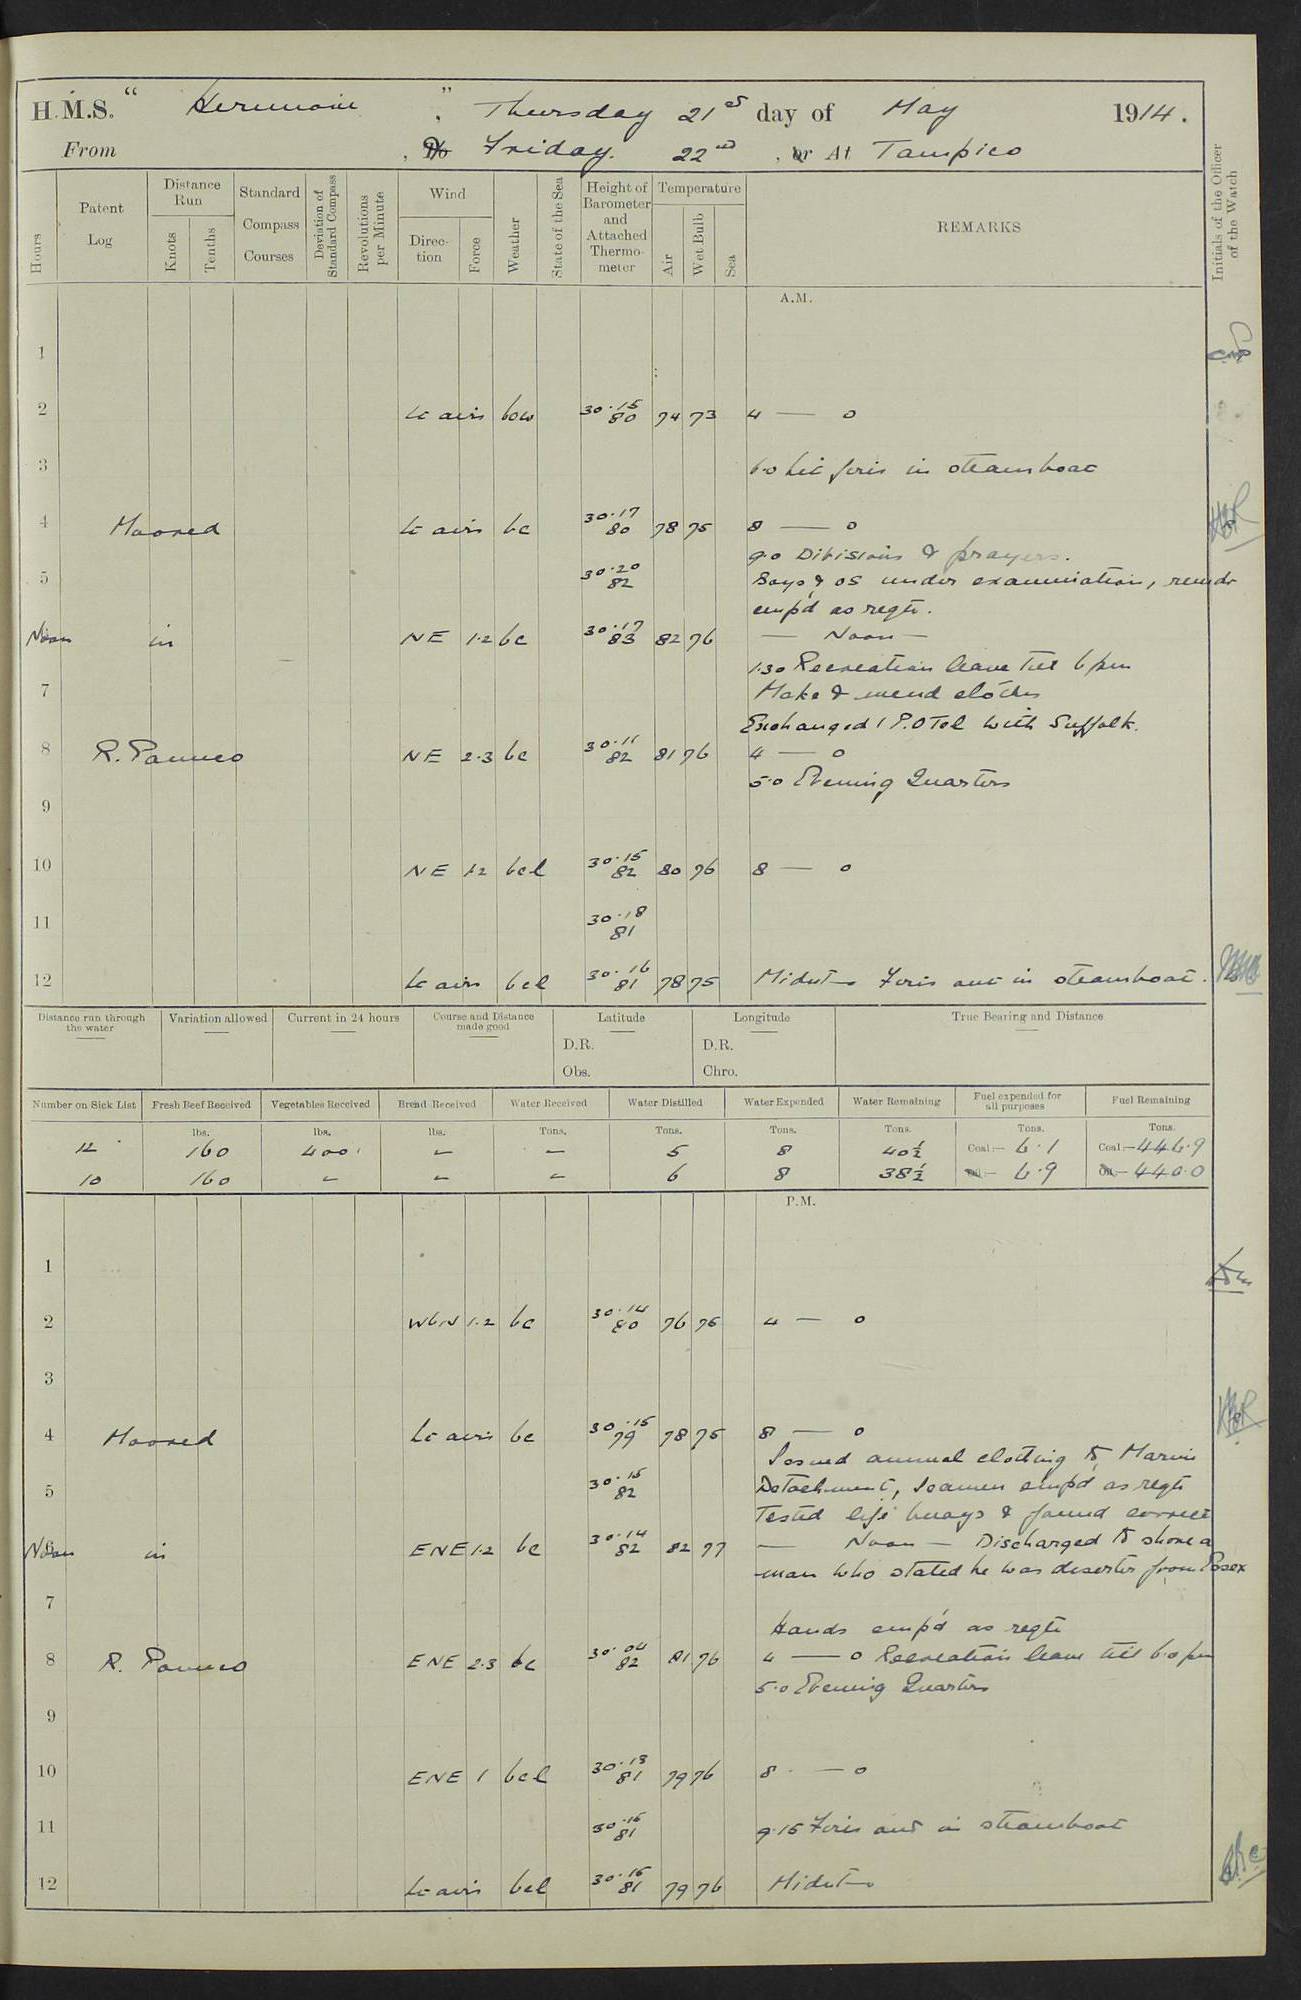 H.M.S. "Hermione", Thursday 21st day of May 1914.
From , To Friday. 22nd , or At Tampico
Hours
Patent Log
Distance Run
Knots
Tenths
Standard Compass Courses
Deviation of Standard Compass
Revolutions per Minute
Wind
Direction
Force
Weather
State of the Sea
Height of Barometer and Attached Thermometer
Temperature
Air
Wet Bulb
Sea
REMARKS
Initials of the Officer of the Watch
A.M.
1
2 Lt airs bcw 30.15 80 74 73 4 — 0
3 6.0 Lit fires in steamboat
4 Moored Lt airs bc 30.17 80 78 75 8 — 0
9.0 Divisions & prayers.
5 30.20 82 Boys & OS under examination, remdr
emp'd as reqte.
Noon in NE 1.2 bc 30.17 83 82 76 — Noon —
1.30 Recreation leave till 6 pm
7 Make & mend clothes
Exchanged 1 P.O Tel with Suffolk.
8 R. Panuco NE 2.3 bc 30.11 82 81 76 4 — 0
5.0 Evening Quarters
9
10 NE 1.2 bcl 30.15 82 80 76 8 — 0
11 30.18 81
12 Lt airs bcl 30.16 81 78 75 Midnt Fires out in steamboat.
Distance run through the water
Variation allowed
Current in 24 hours
Course and Distance made good
Latitude
D.R.
Obs.
Longitude
D.R.
Chro.
True Bearing and Distance
Number on Sick List Fresh Beef Received Vegetables Received Bread Received Water Received Water Distilled Water Expended Water Remaining Fuel expended for all purposes Fuel Remaining
lbs. lbs. lbs. Tons. Tons. Tons. Tons. Tons. Tons.
12 160 400 — — 5 8 40½ Coal:— 6.1 Coal:— 446.9
10 160 — — — 6 8 38½ Oil:— 6.9 Oil:— 440.0
P.M.
1
2 WbN 1.2 bc 30.14 80 76 75 4 — 0
3
4 Moored Lt airs bc 30.15 79 78 75 8 — 0
Issued annual clothing to Marine
5 30.15 82 Detachment, Seamen emp'd as reqte
Tested life buoys & found correct
6 Noon in ENE 1.2 bc 30.14 82 82 77 — Noon — Discharged to shore a
man who stated he was deserter from Essex
7
Hands emp'd as reqte
8 R. Panuco ENE 2.3 bc 30.04 82 81 76 4 — 0 Recreation leave till 6.0 pm
5.0 Evening Quarters
9
10 ENE 1 bcl 30.13 81 79 76 8 — 0
11 30.16 81 9.15 Fires out in steamboat
12 Lt airs bcl 30.16 81 79 76 Midnt